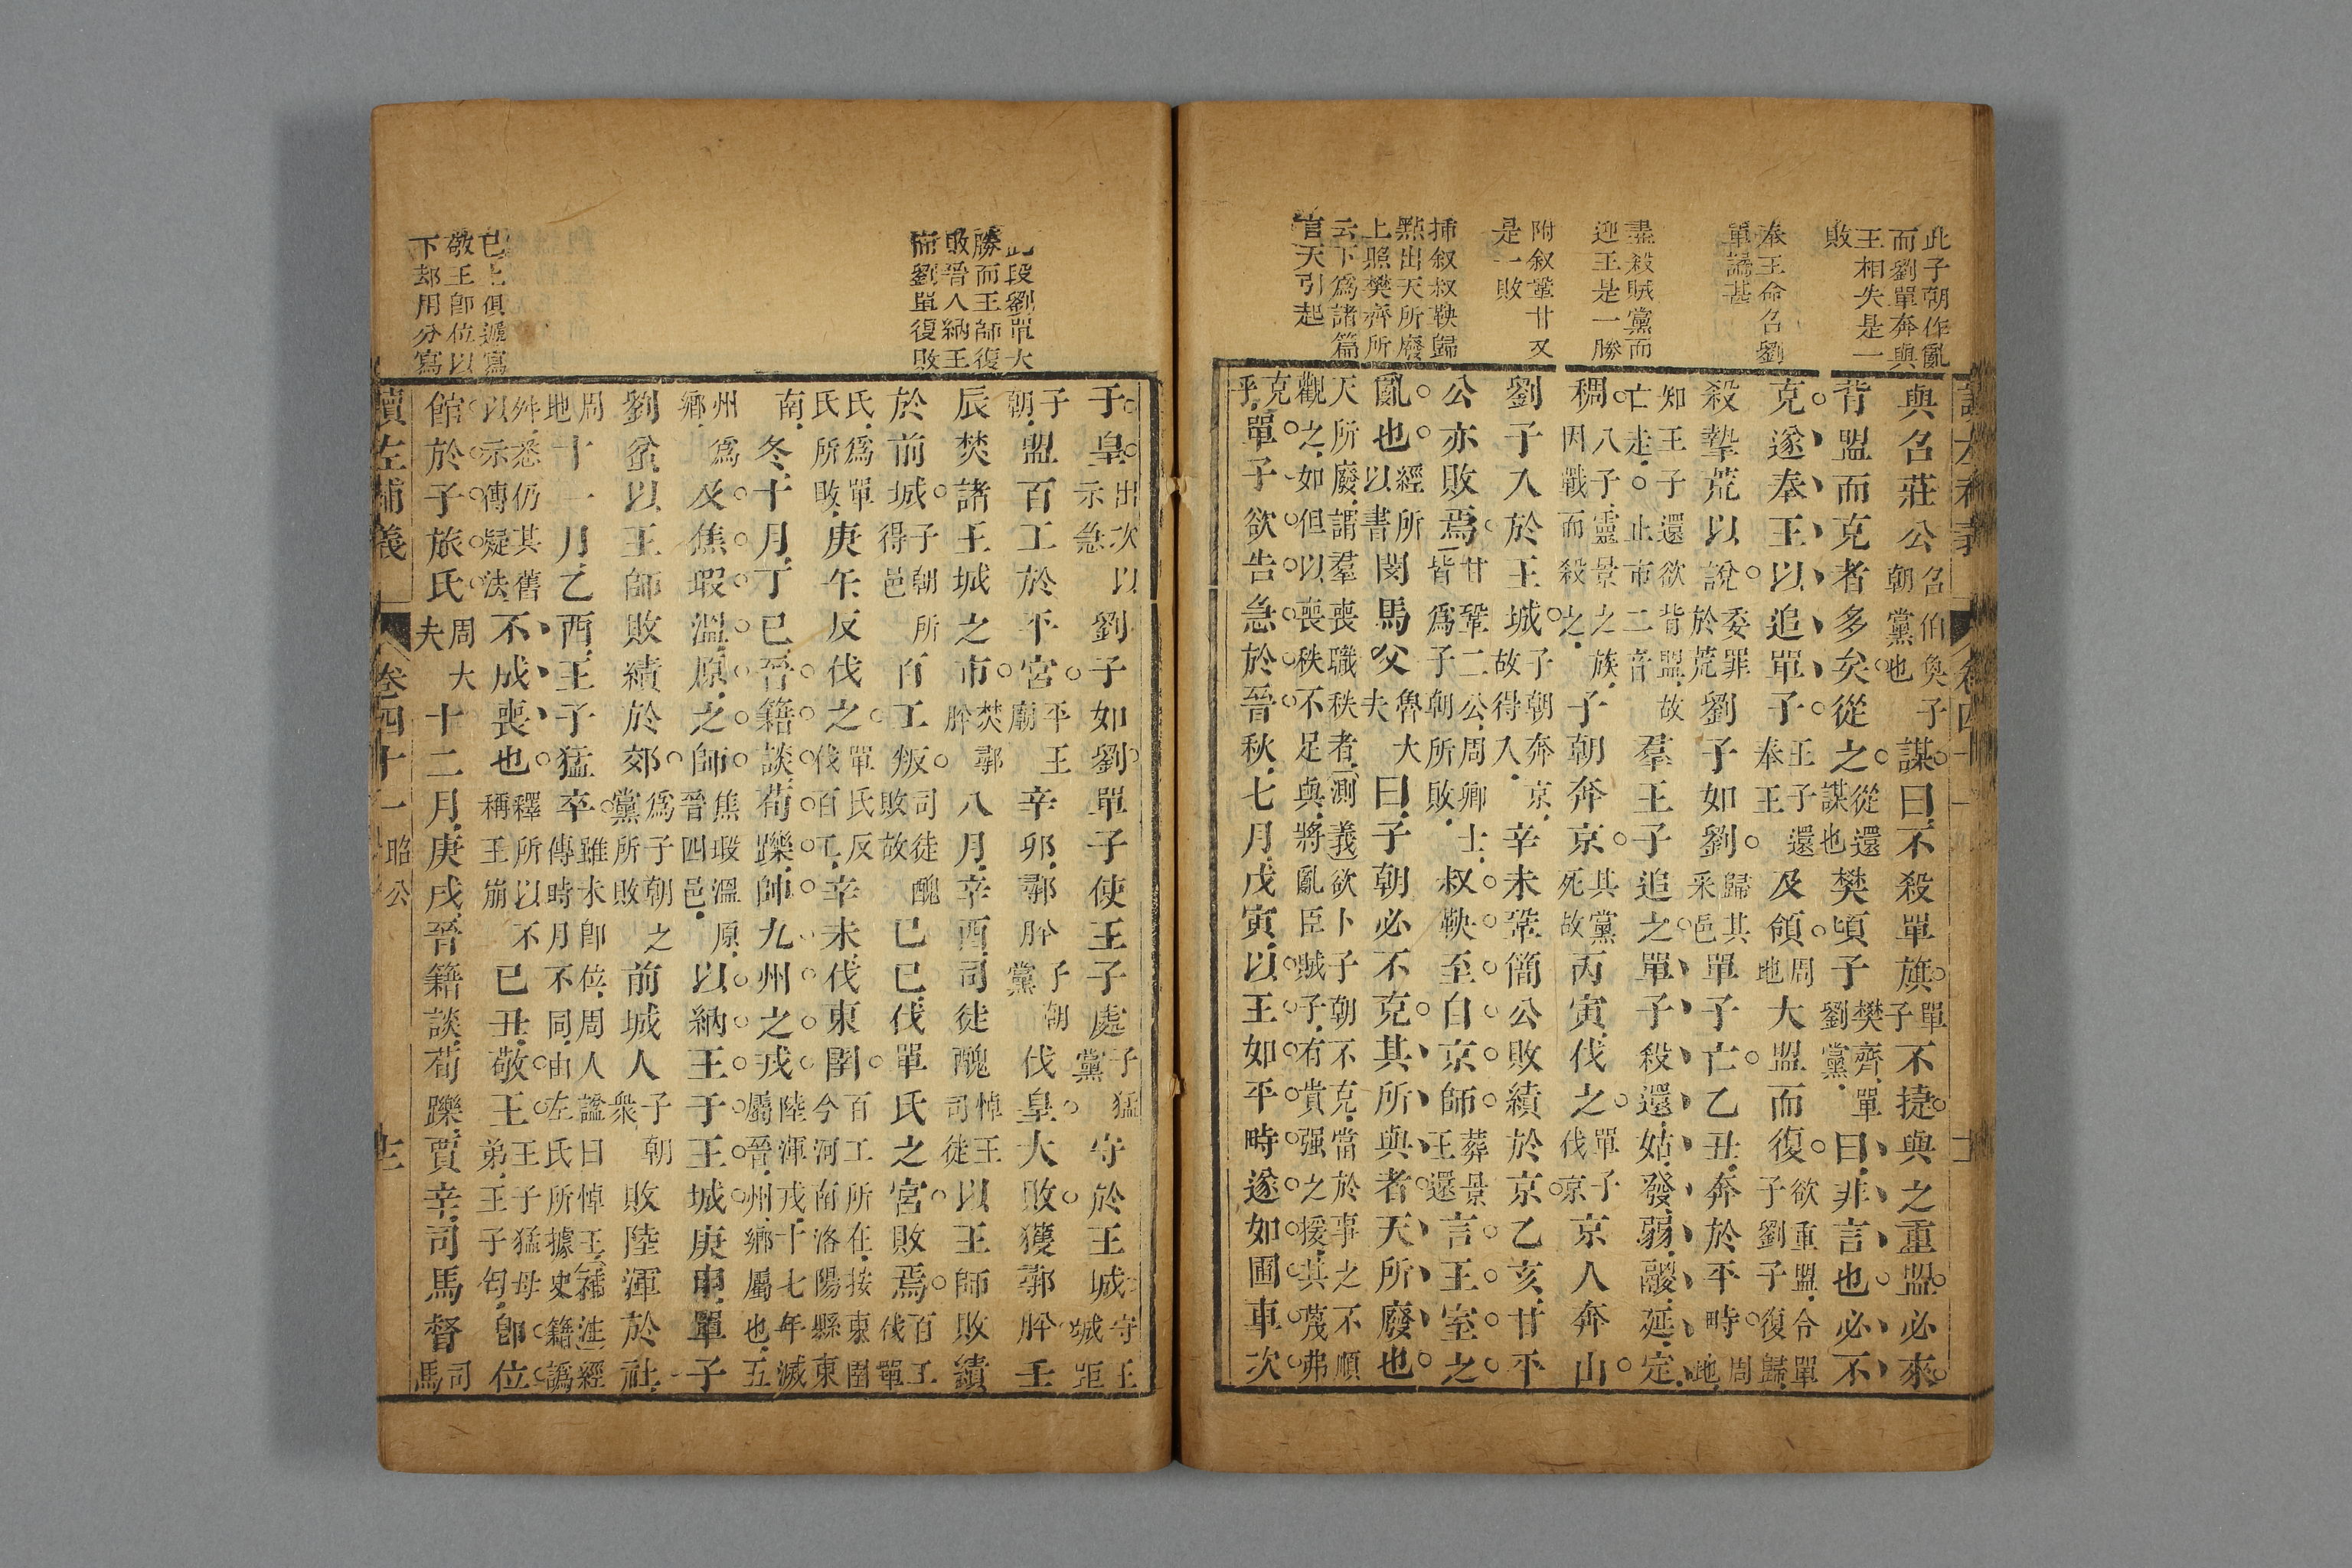 此子朝作亂
而劉單奔與
王相失是一
敗
奉王命召劉
單譎甚
盡殺賊黨而
迎王是一勝
附叙鞏甘又
是一敗
插叙叔鞅歸
點出天所廢
上照樊齊所
云下為諸篇
言天引起
與召莊公召伯奐子朝黨也謀曰不殺單旗單子不捷與之重盟必來
背盟而克者多矣從之從還謀也樊頃子樊齊單劉黨曰非言也必不
克遂奉王以追單子王子還奉王及領周地大盟而復欲重盟令單子劉子復歸
殺摯荒以說委罪於荒劉子如劉歸其采邑單子亡乙丑奔於平畤周地
知王子還欲背盟故亡走○止市二音羣王子追之單子殺還姑發弱鬷延定
稠八子靈景之族因戰而殺之子朝奔京其黨死故丙寅伐之單子伐京京人奔山
劉子入於王城子朝奔京故得入辛未鞏簡公敗績於京乙亥甘平
公亦敗焉甘鞏二公周卿士皆為子朝所敗叔鞅至自京師葬景王還言王室之
亂也經所以書閔馬父魯大夫曰子朝必不克其所與者天所廢也
天所廢謂羣喪職秩者測義欲卜子朝不克當於事之不順觀之如但以喪秩不足與將亂臣賊子有貴强之援其蔑弗
克乎單子欲告急於晉秋七月戊寅以王如平畤遂如圃車次
此段劉單大
勝而王師復
敗晉人納王
而劉單復敗
已上俱遞寫
敬王卽位以
下却用分寫
于皇出次以示急劉子如劉單子使王子處子猛黨守於王城守王城距
子朝盟百工於平宮平王廟辛卯鄩肸子朝黨伐皇大敗獲鄩肸壬
辰焚諸王城之市焚鄩肸八月辛酉司徒醜悼王司徒以王師敗績
於前城子朝所得邑百工叛司徒醜敗故己巳伐單氏之宮敗焉百工伐單
氏為單氏所敗庚午反伐之單氏反伐百工辛未伐東圉百工所在按東圉今河南洛陽縣東
南冬十月丁巳晉籍談荀躒帥九州之戎陸渾戎十七年滅屬晉州鄉屬也五
州為鄉及焦瑕溫原之師焦瑕溫原晉四邑以納王于王城庚申單子
劉蚠以王師敗績於郊為子朝之黨所敗前城人子朝衆敗陸渾於社
周地十一月乙酉王子猛卒雖未卽位周人諡曰悼王補注經傳時月不同由左氏所據史籍譌
舛悉仍其舊以示傳疑法不成喪也釋所以不稱王崩己丑敬王王子猛母弟王子匄卽位
館於子旅氏周大夫十二月庚戌晉籍談荀躒賈辛司馬督司馬
讀左補義
卷四十一
昭公